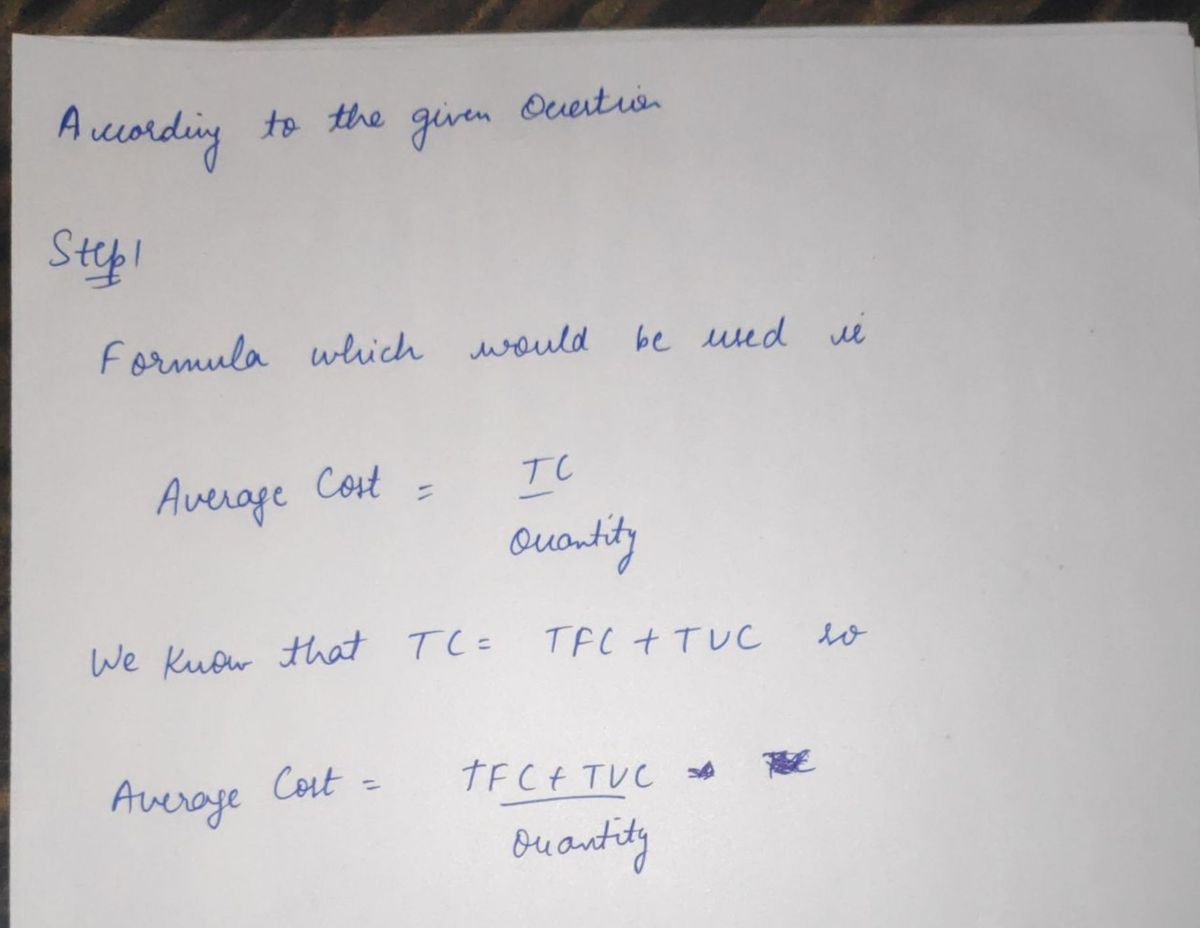 According to the given Question
Step 1
Formula which would be used is
Average Cost = TC
Quantity
We Know that TC = TFC + TVC so
Average Cost = TFC + TVC
Quantity